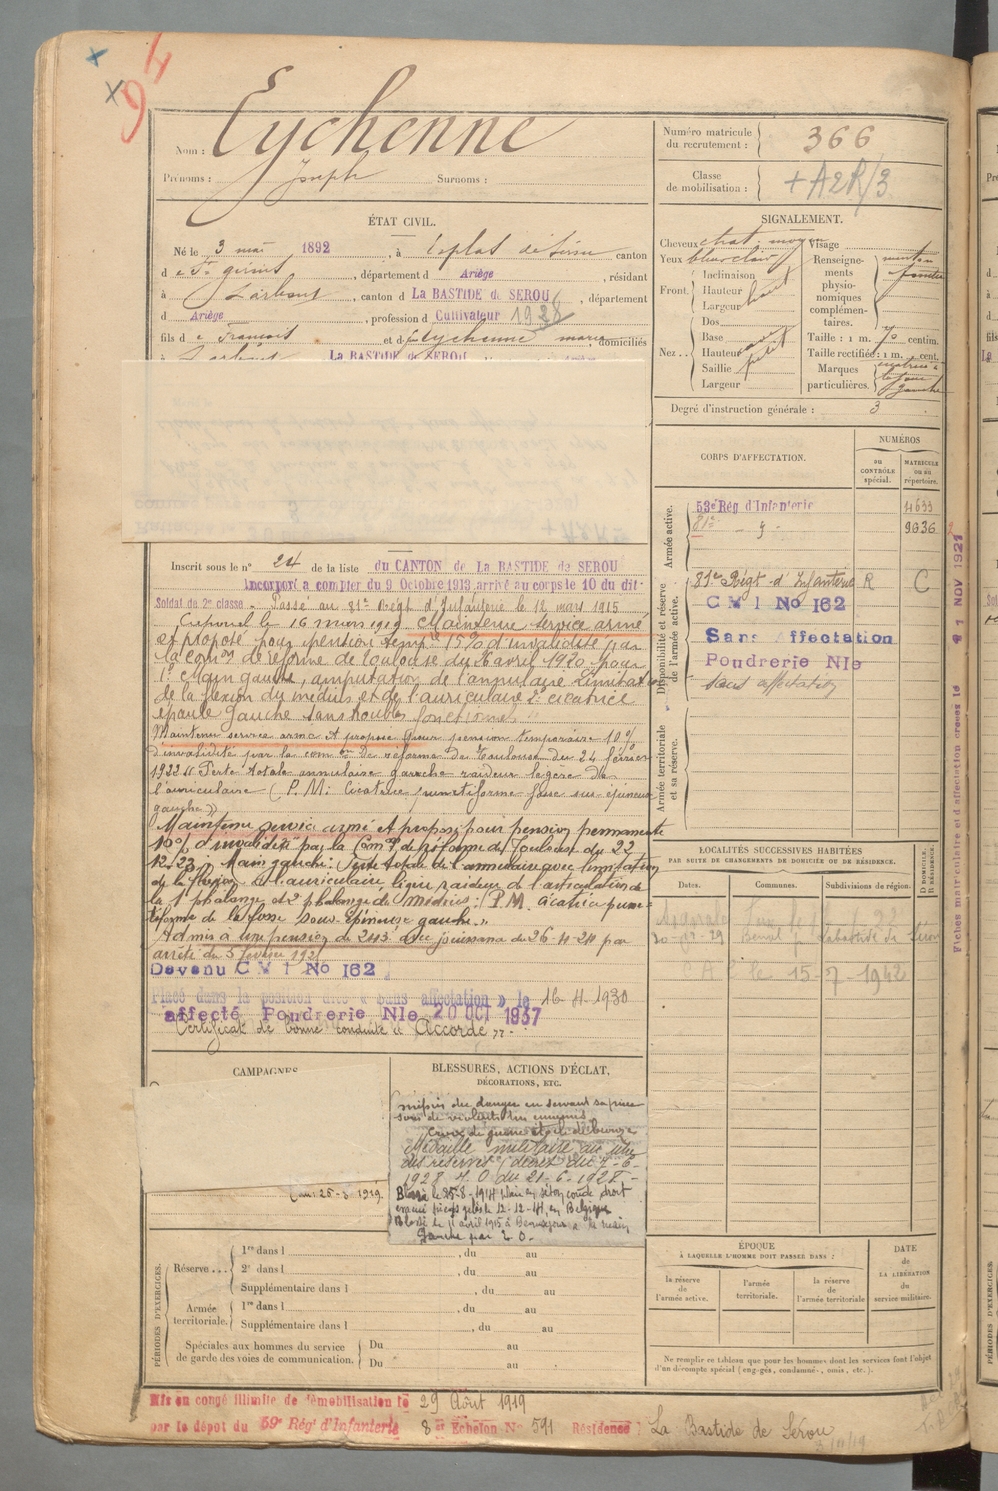 94
Nom : Eychenne
Prénoms : Joseph Surnoms :
Numéro matricule du recrutement : 366
Classe de mobilisation : + A2R/3
ÉTAT CIVIL.
Né le 3 mai 1892, à canton
d e St girons, département d Ariège, résidant
à Larbont, canton d La BASTIDE de SEROU, département
d Ariège, profession d Cultivateur 1928
fils d e François et d Eychenne marie, domiciliés
La BASTIDE de SEROU
SIGNALEMENT.
Cheveux chat. moyen
Yeux bleu clair
Front. Inclinaison
Hauteur
Largeur haut
Nez.. Dos
Base
Hauteur
Saillie petit
Largeur
Visage
Renseignements physionomiques complémentaires. menton
Taille : 1 m. 70 centim.
Taille rectifiée : 1 m. cent.
Marques particulières. gauche
Degré d'instruction générale : 3
CORPS D'AFFECTATION.
NUMÉROS
au CONTRÔLE spécial.
MATRICULE ou au répertoire.
Armée active.
53e Rég d'Infanterie 4633
81e - 9 - 9036
Disponibilité et réserve de l'armée active.
81e Régt d'Infanterie R C
C M 1 No 162
Sans Affectation
Poudrerie Nle
sans affectation
Armée territoriale et sa réserve.
Fiches matriculaire et d'affectation créées le 21 NOV 1921
Inscrit sous le n° 24 de la liste du CANTON de La BASTIDE de SEROU
Incorporé a compter du 9 Octobre 1913 arrivé au corps le 10 du dit
Soldat de 2e classe. Passé au 81e Régt d'Infanterie le 12 mars 1915
Caporal le 16 mars 1919 Maintenu service armé
et proposé pour pension tempre 15% d'invalidité par
la comon de réforme de Toulouse du 2 avril 1920 pour
1° Main gauche, amputation de l'annulaire limitation
de la flexion du médius et de l'auriculaire 2° cicatrice
épaule gauche sans troubles fonctionnels
Maintenu service armé et proposé pour pension temporaire 10%
d'invalidité par la comon de réforme de Toulouse du 24 février
1922 « Perte totale annulaire gauche raideur légère de
l'auriculaire (P.M. cicatrice punctiforme fosse sus épineuse
gauche »
Maintenu service armé et proposé pour pension permanente
10% d'invalidité par la Comon de réforme de Toulouse du 22
12-23 « Main gauche: Perte totale de l'annulaire avec limitation
de la flexion de l'auriculaire, légère raideur de l'articulation de
la 1e phalange et 2e phalange du Médius: P.M. cicatrice punc-
tiforme de la fosse sous-épineuse gauche »
Admis à une pension de 243f avec jouissance du 26-11-24 par
arrêté du 5 février 192
Devenu C M 1 No 162
Placé dans la position dite « Sans affectation » le 16-4-1930
affecté Poudrerie Nle 20 OCT 1937
Certificat de bonne conduite « Accordé »
LOCALITÉS SUCCESSIVES HABITÉES
PAR SUITE DE CHANGEMENTS DE DOMICILE OU DE RÉSIDENCE.
Dates. Communes. Subdivisions de région. D. DOMICILE. R. RÉSIDENCE.
Labastide de Sérou
15-7-1942
CAMPAGNES
au 25-8 1919
BLESSURES, ACTIONS D'ÉCLAT,
DÉCORATIONS, ETC.
mépris du danger en servant sa pièce
sous de violents tirs ennemis
Croix de guerre étoile de bronze
Médaille militaire au titre
des réserves (décret du 7-6-
1928 J.O du 21-6-1928 -
Blessé le 25-8-1914 coude droit
évacué pieds gelés le 12-12-14, en Belgique
Blessé le 11 avril 1915 à Beauséjour à la main
gauche par E O.
PÉRIODES D'EXERCICES.
Réserve... 1re dans l , du au
2e dans l , du au
Supplémentaire dans l , du au
Armée territoriale. 1re dans l , du au
Supplémentaire dans l , du au
Spéciales aux hommes du service de garde des voies de communication. Du au
Du au
ÉPOQUE
À LAQUELLE L'HOMME DOIT PASSER DANS :
la réserve de l'armée active.
l'armée territoriale.
la réserve de l'armée territoriale
DATE de LA LIBÉRATION du service militaire.
Ne remplir ce tableau que pour les hommes dont les services font l'objet
d'un décompte spécial (engagés, condamnés, omis, etc.).
Mis en congé illimité de démobilisation le 29 Août 1919
par le dépôt du 59e Rég d'Infanterie 8e Echelon No 591 Résidence La Bastide de Sérou